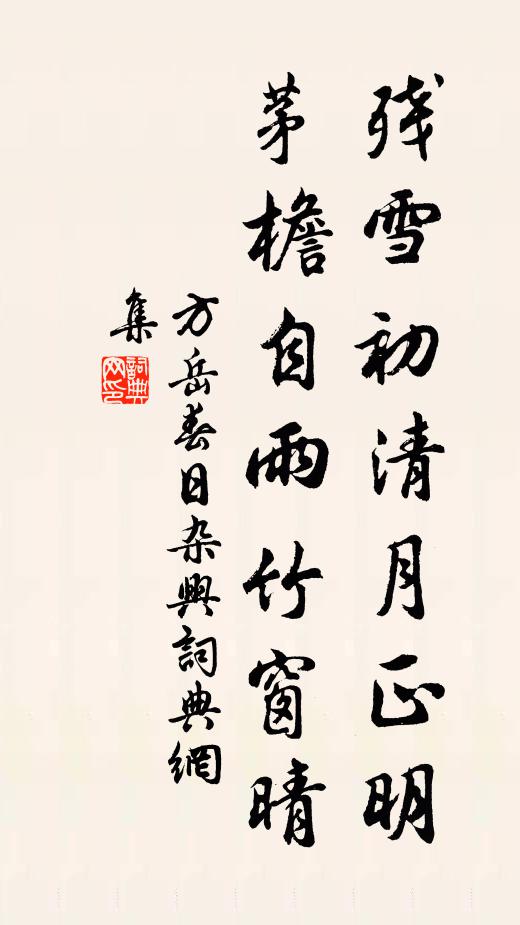 残雪初清月正明
茅檐自雨竹窗晴
方岳春日杂興詞典網
集
詞典
网印